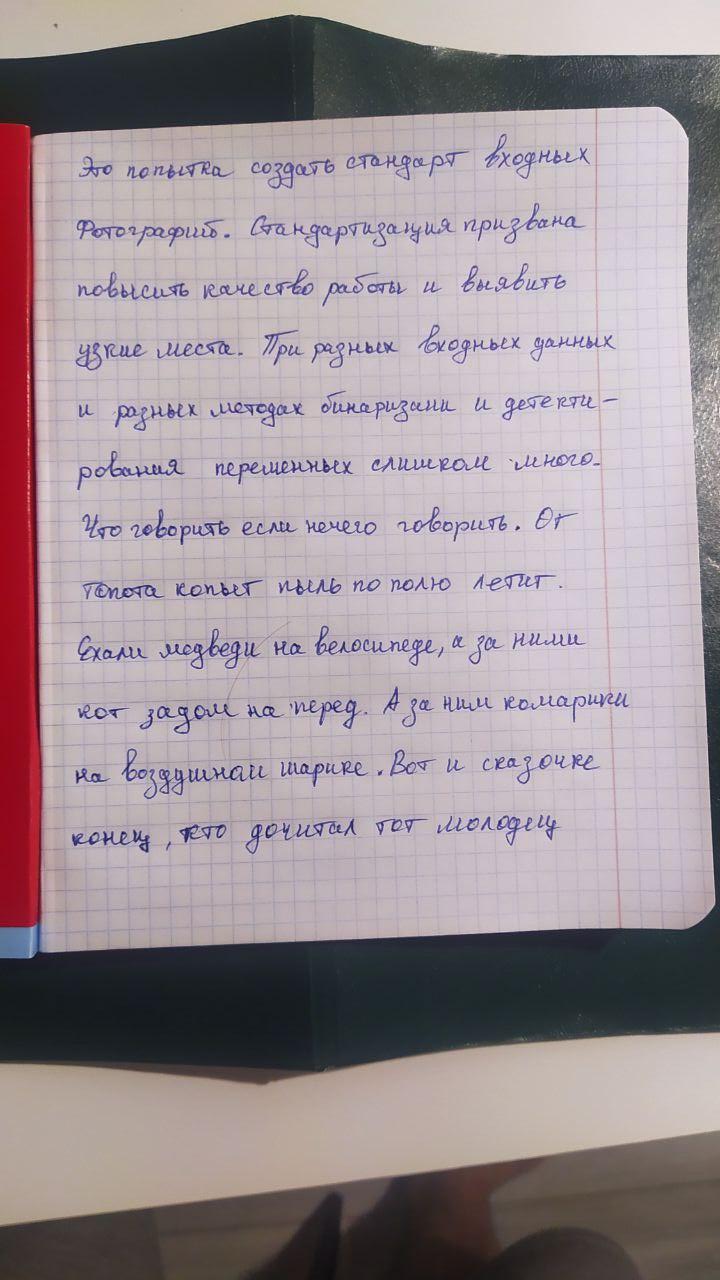 Это попытка создать стандарт входных
Фотографий. Стандартизация призвана
повысить качество работы и выявить
узкие места. При разных входных данных
и разных методах бинаризации и детекти-
рования переменных слишком много.
Что говорить если нечего говорить. От
топота копыт пыль по полю летит.
Ехали медведи на велосипеде, а за ними
кот задом на перед. А за ним комарики
на воздушном шарике. Вот и сказочке
конец, кто дочитал тот молодец